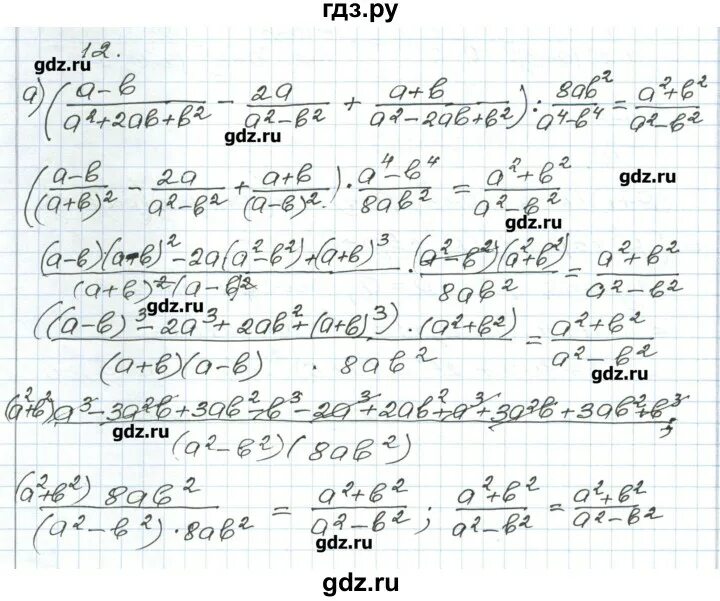 гдз.ру
12.
gdz.ru
а) ((a-b)/(a²+2ab+b²) - 2a/(a²-b²) + (a+b)/(a²-2ab+b²)) : 8ab²/(a⁴-b⁴) = (a²+b²)/(a²-b²)
gdz.ru
((a-b)/(a+b)² - 2a/(a²-b²) + (a+b)/(a-b)².) · (a⁴-b⁴)/8ab² = (a²+b²)/(a²-b²)
gdz.ru
gdz.ru
((a-b)(a-b)² - 2a(a²-b²) + (a+b)³)/((a+b)²(a-b)²) · (a²-b²)(a²+b²)/8ab² = (a²+b²)/(a²-b²)
gdz.ru
((a-b)³ - 2a³ + 2ab² + (a+b)³) · (a²+b²)/((a+b)(a-b) · 8ab²) = (a²+b²)/(a²-b²)
gdz.ru
(a²+b²) a³ - 3a²b + 3ab² - b³ - 2a³ + 2ab² + a³ + 3a²b + 3ab² + b³/((a²-b²)(8ab²)) ;
gdz.ru
(a²+b²) 8ab²/((a²-b²) · 8ab²) = (a²+b²)/(a²-b²) ; (a²+b²)/(a²-b²) = (a²+b²)/(a²-b²)
gdz.ru
gdz.ru